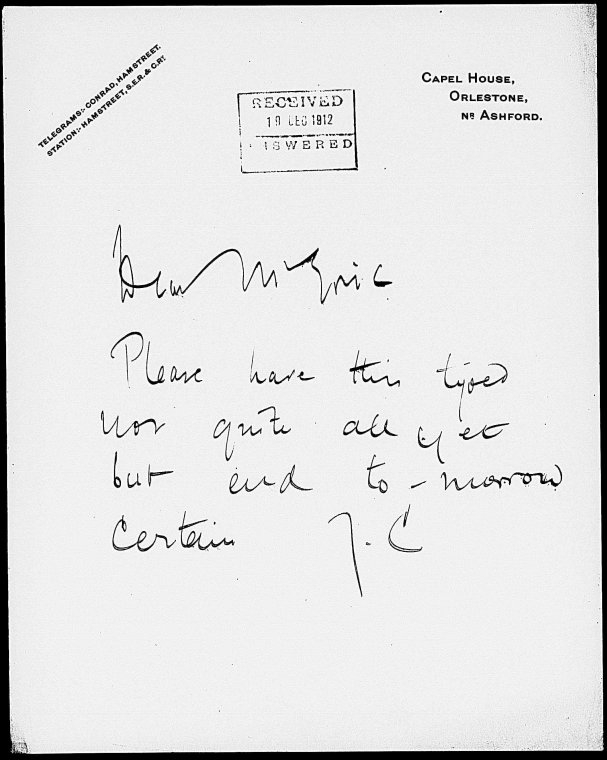 TELEGRAMS:- CONRAD, HAMSTREET.
STATION:- HAMSTREET, S.E.R. & C.RY.
CAPEL HOUSE,
ORLESTONE,
NR ASHFORD.
RECEIVED
19 DEC 1912
ANSWERED
Dear Mr Eric
Please have this typed
not quite all yet
but end to-morrow
certain J. C